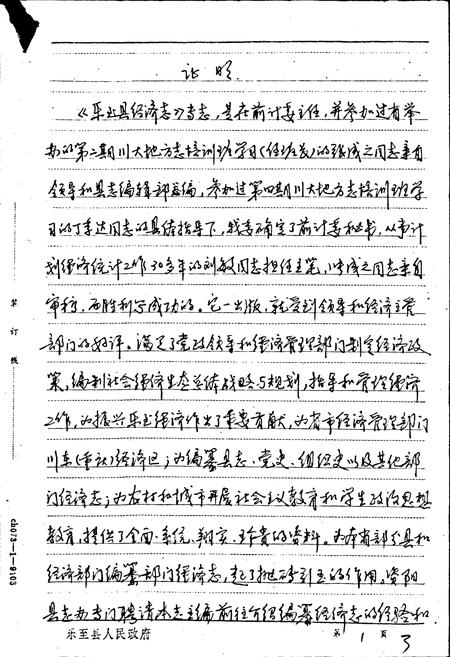 证明
《乐至县经济志》专志,是在前计委主任,并参加过省举
办的第二期川大地方志培训班学习(任班长)的张成之同志亲自
领导和县志编辑部总编,参加过第四期川大地方志培训班学
习的丁李达同志的具体指导下,我委确定了前计委秘书,从事计
划经济统计工作30多年的刘敏同志担任主笔,张成之同志亲自
审稿,而胜利写成功的。它一出版,就受到领导和经济主管
部门的好评。满足了党政领导和经济管理部门制定经济政
策,编制社会经济生态总体战略与规划,指导和管理经济
工作,为振兴乐至经济作出了重要贡献,为省市经济管理部门
川东(重庆)经济区;为编纂县志、党史、组织史以及其他部
门经济志;为农村和城市开展社会主义教育和学生政治思想
教育,提供了全面、系统、翔实、珍贵的资料。为本省部分县和
经济部门编纂部门经济志,起了抛砖引玉的作用。资阳
县志办专门聘请本志主编前往介绍编纂经济志的经验和
乐至县人民政府
第1页
3
装订线
cb073—1—9103